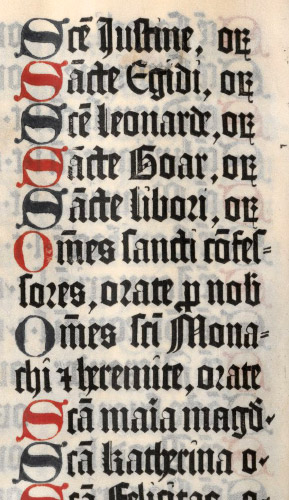 Scē Justine, oꝝ
Sācte Egidi, oꝝ
Scē leonarde, oꝝ
Sācte Goar, oꝝ
Sācte libori, oꝝ
Om̄es sancti cōfes=
sores, orate ꝓ nob
Om̄es scti Mona=
chi ⁊ heremite, orate
Scā maia magd̄.
Scā katherina o.
Scā Felicitas, o.